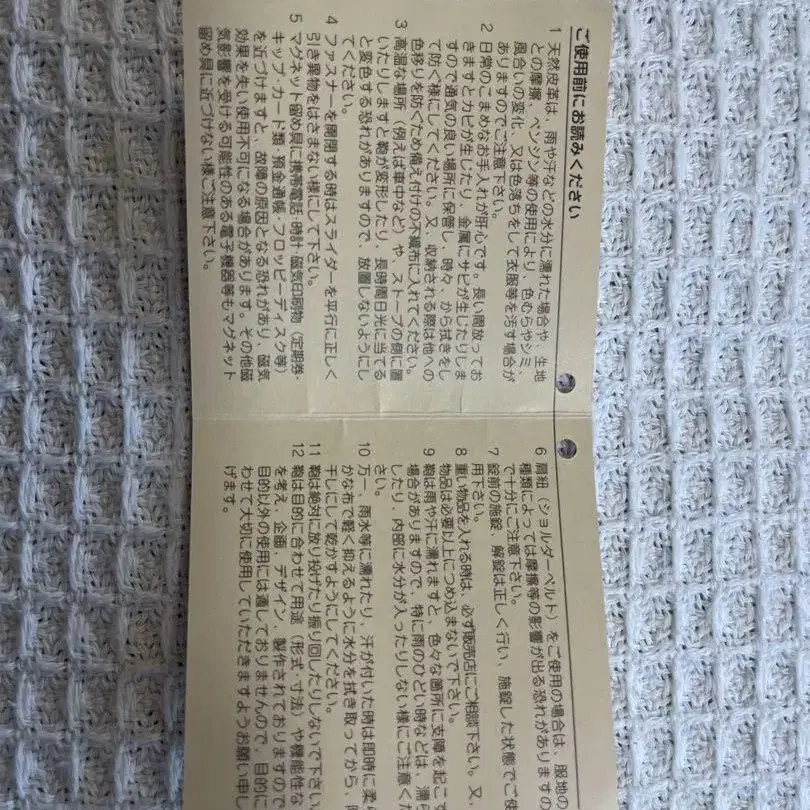 ご使用前にお読みください
1 天然皮革は、雨や汗などの水分に濡れた場合や、生地
との摩擦、ベンジン等の使用により、色むらやシミ、
風合いの変化、又は色落ちをして衣服等を汚す場合が
ありますのでご注意下さい。
2 日常のこまめなお手入れが肝心です。長い間放ってお
きますとカビが生じたり、金属にサビが生じたりしま
すので通気の良い場所に保管し、時々、から拭きをし
て防ぐ様にしてください。又、収納される際は他への
色移りを防ぐため備え付けの不織布に入れてください。
3 高温な場所（例えば車中など）や、ストーブの側に置
いたりしますと鞄が変形したり、長時間日光に当てる
と変色する恐れがありますので、放置しないようにし
てください。
4 ファスナーを開閉する時はスライダーを平行に正しく
引き異物をはさまない様にして下さい。
5 マグネット留め具に携帯電話・時計・磁気印刷物（定期券・
キップ・カード類・預金通帳・フロッピーディスク等）
を近づけますと、故障の原因となる恐れがあり、磁気
効果を失い使用不可になる場合があります。その他磁
気影響を受ける可能性のある電子機器等もマグネット
留め具に近づけない様ご注意下さい。
6 肩紐（ショルダーベルト）をご使用の場合は、服地の
種類によっては摩擦等の影響が出る恐れがありますの
で十分にご注意下さい。
7 錠前の施錠、解錠は正しく行い、施錠した状態でご使
用下さい。
8 重い物品を入れる時は、必ず販売店にご相談下さい。又、
物品は必要以上につめ込まないで下さい。
9 鞄は雨や汗に濡れますと、色々な箇所に支障を起こす
場合がありますので、特に雨のひどい時などは、濡ら
したり、内部に水分が入ったりしない様にご注意くだ
さい。
10 万一、雨水等に濡れたり、汗が付いた時は即時に柔ら
かな布で軽く抑えるように水分を拭き取ってから、
干しにして乾かすようにしてください。
11 鞄は絶対に放り投げたり振り回したりしないで下さい。
12 鞄は目的に合わせて用途（形式・寸法）や機能性な
を考え、企画、デザイン、製作されておりますので
目的以外の使用には適しておりませんので、目的に
わせて大切に使用していただきますようお願い申し
げます。